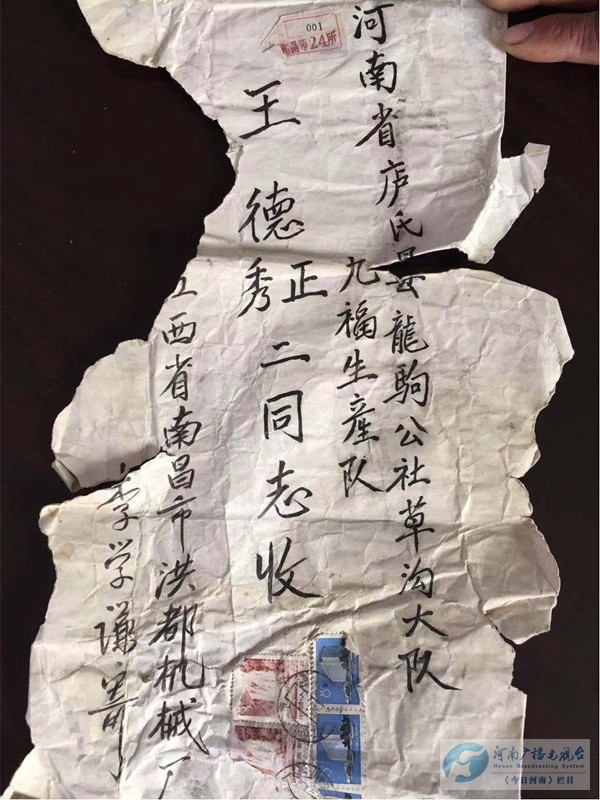 河南省庐氏县龍駒公社草沟大队
九福生産队
王德正
秀二同志收
江西省南昌市洪都机械厂
李学谦寄
001
南昌市24所
河南广播电视台
Henan Broadcasting System
《今日河南》栏目